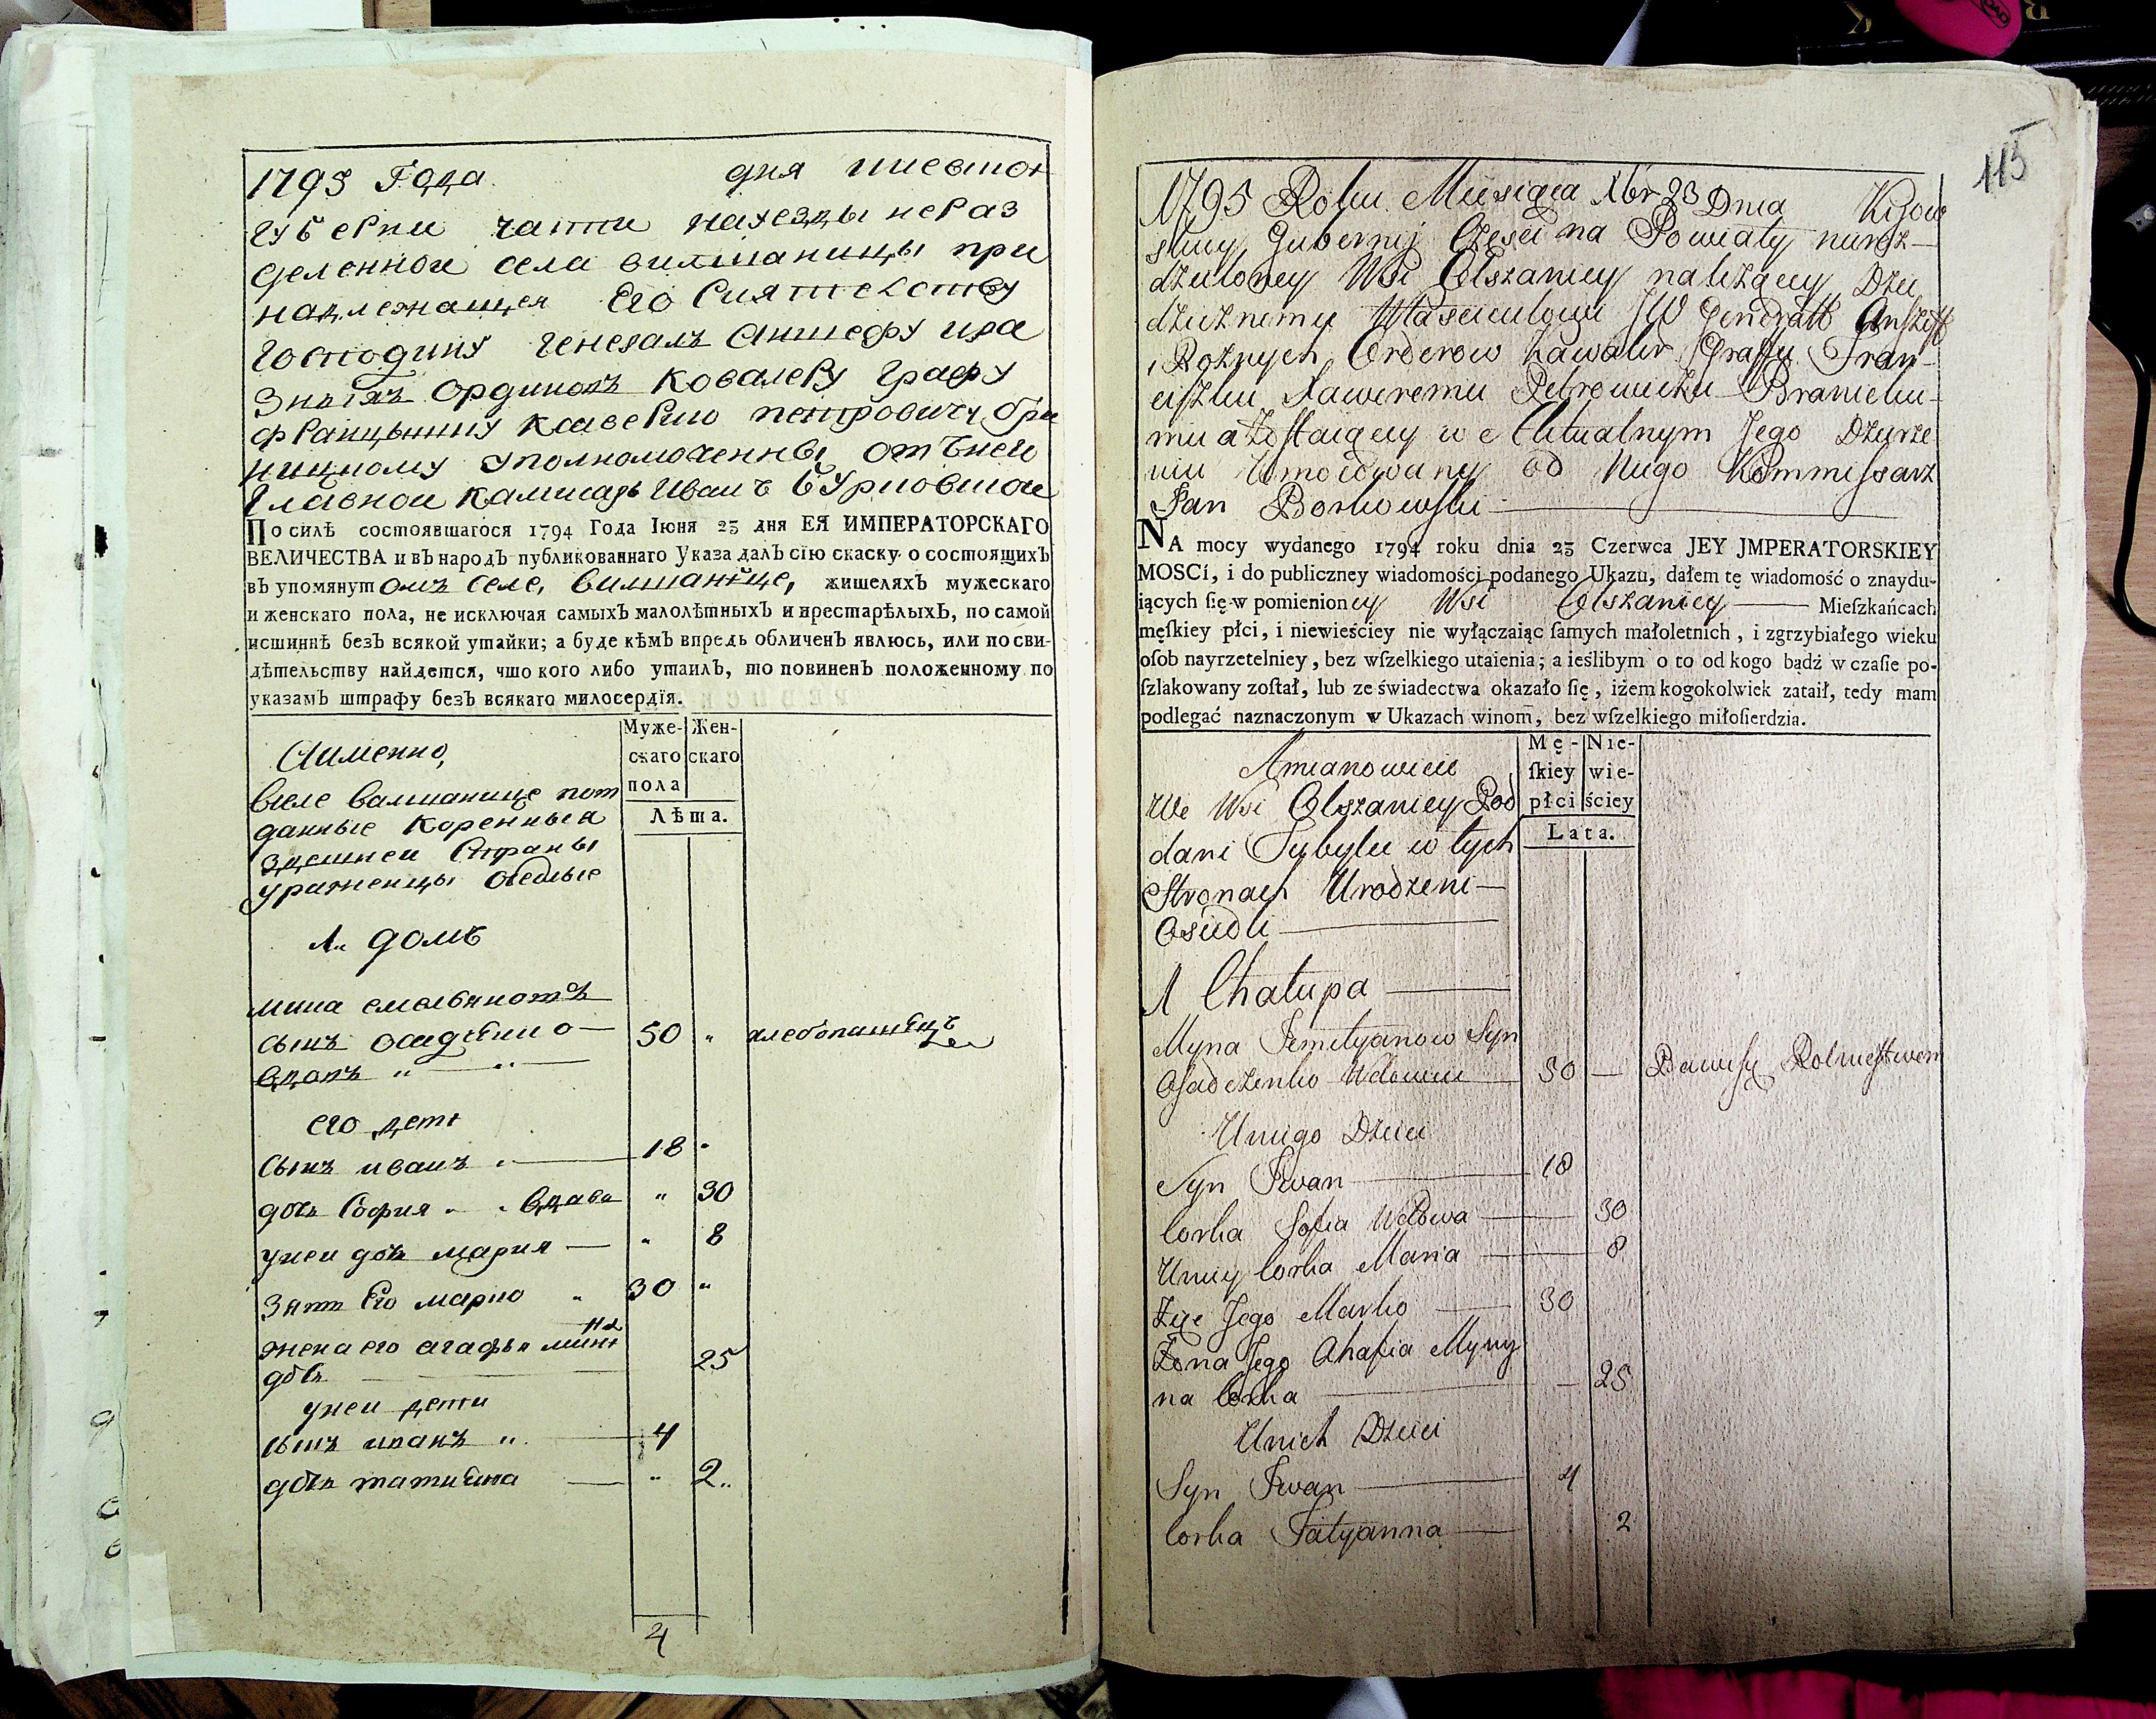 1795 Года дня киевской
губерни части на уезды нераз
деленной села вилшаницы при
надлежащея Его Сиятелству
Господину Генералъ Аншефу и ра
зныхъ ординовъ Ковалеру Графу
уполномоченны отъ него
Главной камисаръ Иванъ
По силѣ состоявшагося 1794 Года Іюня 23 дня ЕЯ ИМПЕРАТОРСКАГО
ВЕЛИЧЕСТВА и въ народъ публикованнаго Указа далъ сію скаску о состоящихъ
въ упомянутомъ селе, вилшанице, жишеляхъ мужескаго
и женскаго пола, не исключая самыхъ малолѣтныхъ и престарѣлыхъ, по самой
исшиннѣ безъ всякой утайки; а буде кѣмъ впредь обличенъ явлюсь, или по сви-
дѣтельству найдется, чшо кого либо утаилъ, то повиненъ положенному по
указамъ штрафу безъ всякаго милосердія.
Муже- Жен-
скаго скаго
пола
Лѣта.
Аименно,
вселе валшанице под
данные коренныя
здешней Страны
уроженцы оседлые
1. домъ
мина емельяновъ
сынъ осадченко 50 „ хлебопашецъ
вдовъ „ „
его дети
сынъ иванъ 18 „
дочь София вдова „ 30
унеи дочь мария „ 8
зять Его марко 30 „
жена его агафья мини
на
дочь 25
унеи дети
сынъ иванъ „ 4
дочь татиана „ 2„
4
115
1795 Roku Miesiąca Xbr 23 Dnia Kijow
skiey Gubernij Części na Powiaty nieroz-
dzieloney Wsi Olszanicy należącey Dzie
dzicznemu Włascicielowi JW Generałł Anszeff
i Rożnych Orderow Kawaler Graffu Fran-
ciszku Xaweremu Petrowiczu Branicku-
mu a Zostaiącey w e Aktualnym Jego Dzierze
niu Umocowany od Niego Kommissarz
Jan Borkowski
NA mocy wydanego 1794 roku dnia 23 Czerwca JEY JMPERATORSKIEY
MOSCi, i do publiczney wiadomości podanego Ukazu, dałem tę wiadomość o znaydu-
iących ſię w pomienioney Wsi Olszanicy Mieſzkańcach
męſkiey płci, i niewieściey nie wyłączaiąc ſamych małoletnich, i zgrzybiałego wieku
oſob nayrzetelniey, bez wſzelkiego utaienia; a ieślibym o to od kogo bądź w czaſie po-
ſzlakowany zoſtał, lub ze świadectwa okazało ſię, iżem kogokolwiek zataił, tedy mam
podlegać naznaczonym w Ukazach winom, bez wſzelkiego miłoſierdzia.
Mę- Nie-
ſkiey wie-
płci ściey
Lata.
Amianowicie
We Wsi Olszanicy Pod
dani Tubylcy w tych
Stronach Urodzeni
Osiedli
1 Chałupa
Myna Jemilyanow Syn
Osadczenko Wdowiec 50 — Bawi się Rolnictwem
U niego Dzieci
Syn Iwan 18
Corka Sofia Wdowa 30
U niey Corka Maria 8
Zięć Jego Marko 30
Żona Jego Ahafia Myny
na Corka 25
U nich Dzieci
Syn Iwan 4
Corka Tatyanna 2